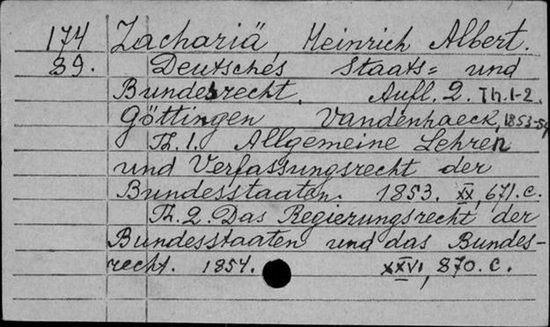 174 Zachariä, Heinrich Albert.
39. Deutsches Staats= und
Bundesrecht. Aufl. 2. Th. 1-2.
Göttingen Vandenhaeck, 1853-54
Th. 1. Allgemeine Lehren
und Verfassungsrecht der
Bundesstaaten. 1853. XX, 671. c.
Th. 2. Das Regierungsrecht der
Bundesstaaten und das Bundes-
recht. 1854. XXVI, 870. c.